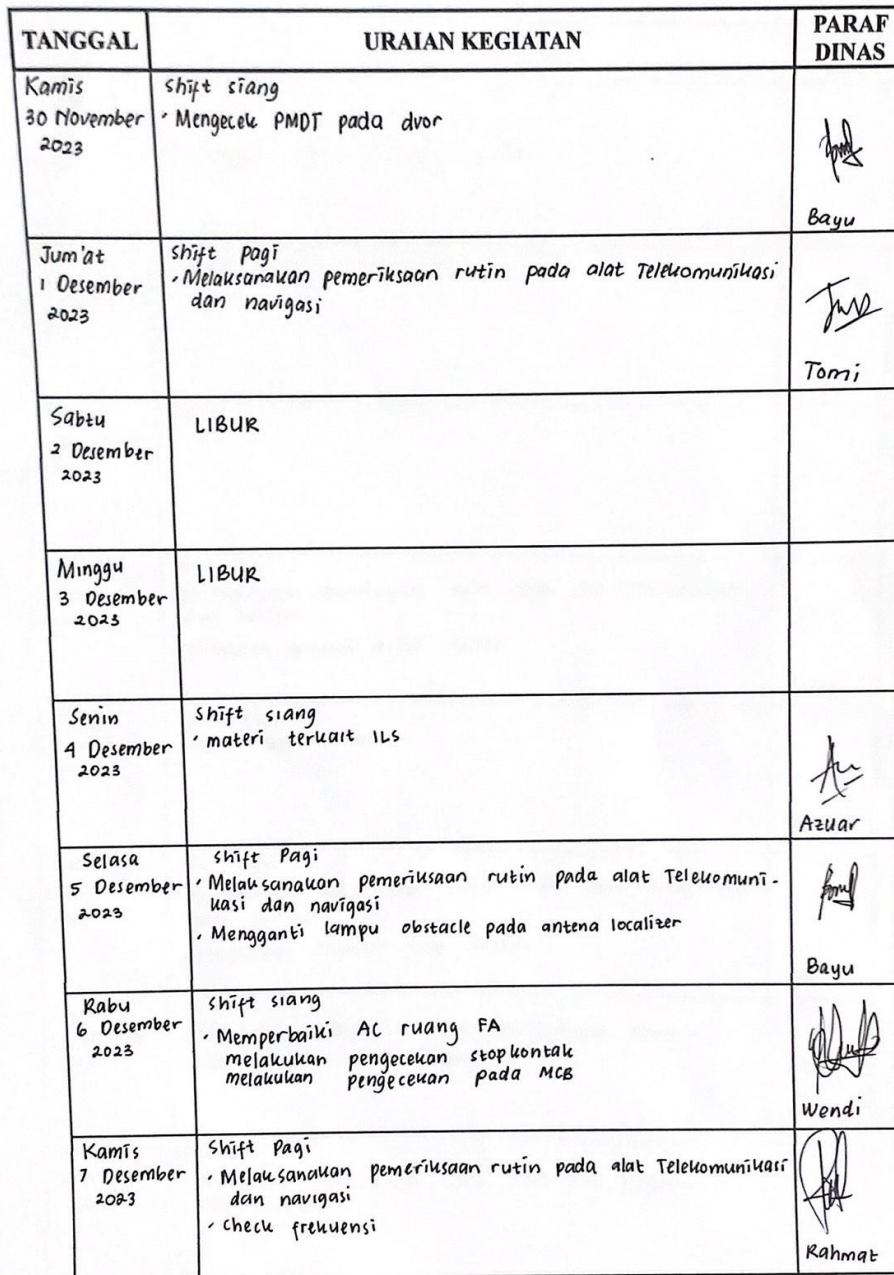 TANGGAL
URAIAN KEGIATAN
PARAF
DINAS
Kamis
30 November
2023
Shift siang
· Mengecek PMDT pada dvor
Bayu
Jum'at
1 Desember
2023
Shift Pagi
· Melaksanakan pemeriksaan rutin pada alat Telekomunikasi
dan navigasi
Tomi
Sabtu
2 Desember
2023
LIBUR
Minggu
3 Desember
2023
LIBUR
Senin
4 Desember
2023
Shift siang
· materi terkait ILS
Azuar
Selasa
5 Desember
2023
Shift Pagi
· Melaksanakan pemeriksaan rutin pada alat Telekomuni-
kasi dan navigasi
· Mengganti lampu obstacle pada antena localizer
Bayu
Rabu
6 Desember
2023
Shift siang
· Memperbaiki AC ruang FA
melakukan pengecekan stopkontak
melakukan pengecekan pada MCB
Wendi
Kamis
7 Desember
2023
Shift Pagi
· Melaksanakan pemeriksaan rutin pada alat Telekomunikasi
dan navigasi
· check frekuensi
Rahmat